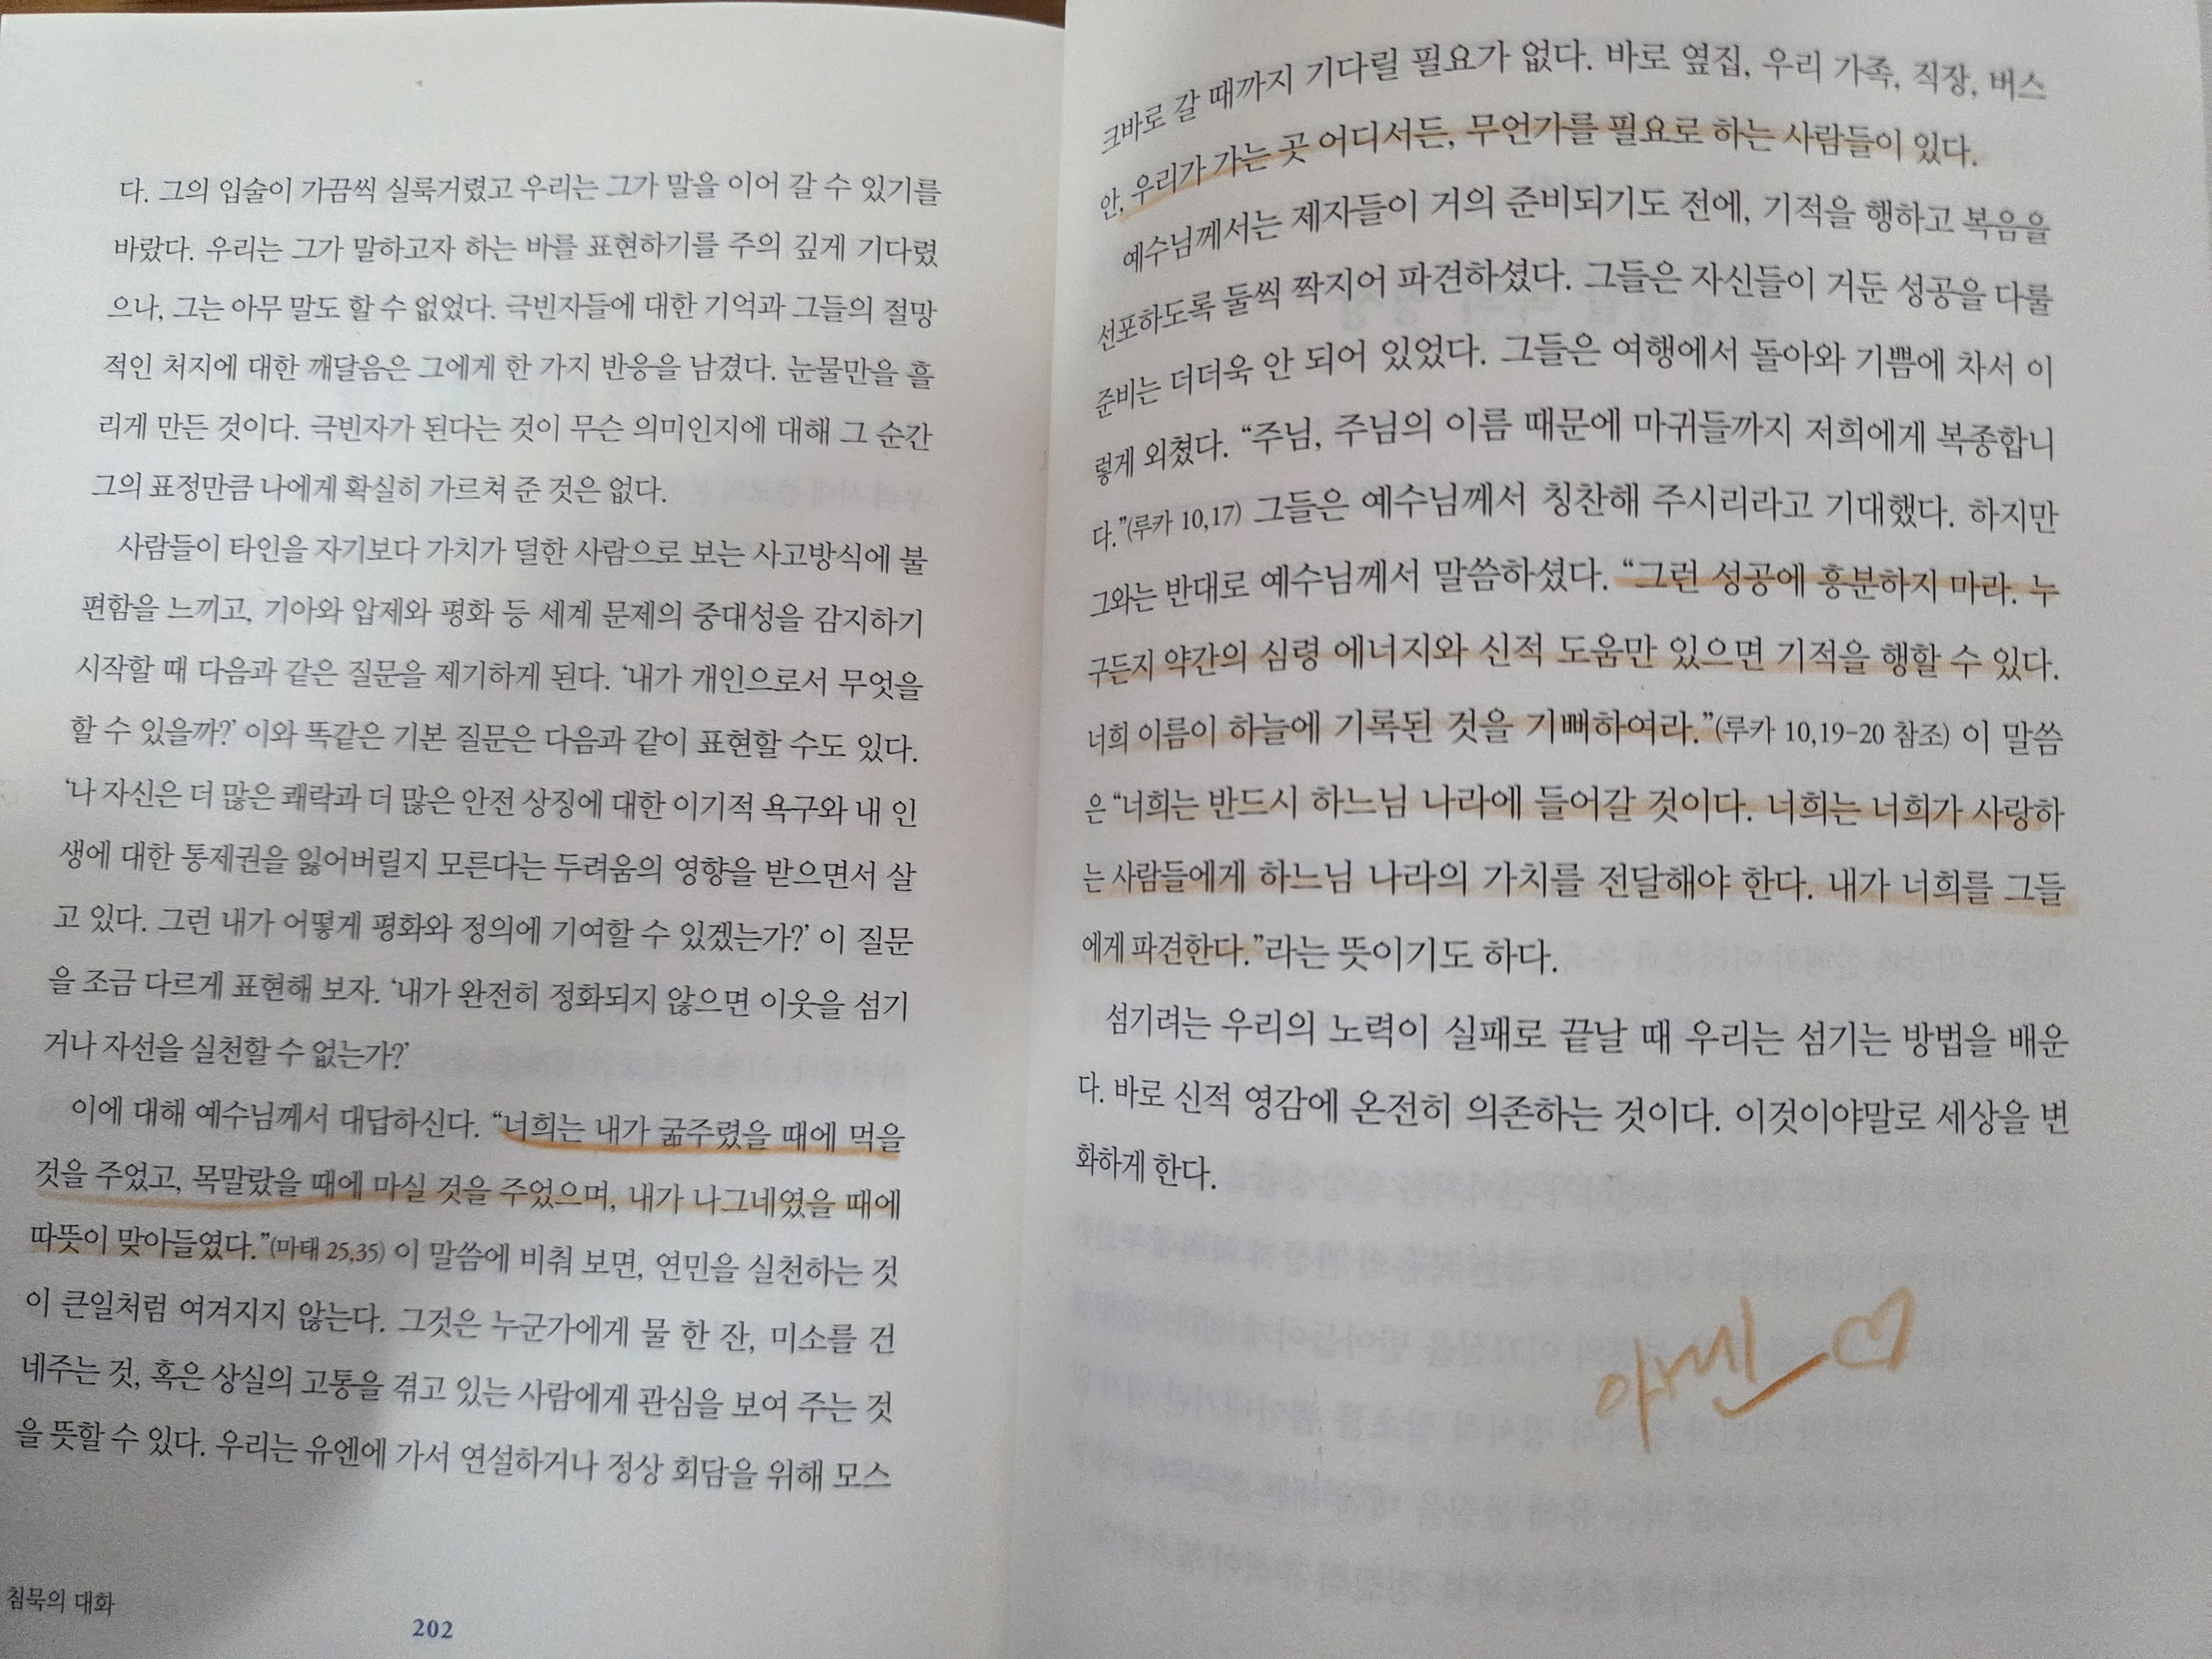 다. 그의 입술이 가끔씩 실룩거렸고 우리는 그가 말을 이어 갈 수 있기를
바랐다. 우리는 그가 말하고자 하는 바를 표현하기를 주의 깊게 기다렸
으나, 그는 아무 말도 할 수 없었다. 극빈자들에 대한 기억과 그들의 절망
적인 처지에 대한 깨달음은 그에게 한 가지 반응을 남겼다. 눈물만을 흘
리게 만든 것이다. 극빈자가 된다는 것이 무슨 의미인지에 대해 그 순간
그의 표정만큼 나에게 확실히 가르쳐 준 것은 없다.
사람들이 타인을 자기보다 가치가 덜한 사람으로 보는 사고방식에 불
편함을 느끼고, 기아와 압제와 평화 등 세계 문제의 중대성을 감지하기
시작할 때 다음과 같은 질문을 제기하게 된다. ‘내가 개인으로서 무엇을
할 수 있을까?’ 이와 똑같은 기본 질문은 다음과 같이 표현할 수도 있다.
‘나 자신은 더 많은 쾌락과 더 많은 안전 상징에 대한 이기적 욕구와 내 인
생에 대한 통제권을 잃어버릴지 모른다는 두려움의 영향을 받으면서 살
고 있다. 그런 내가 어떻게 평화와 정의에 기여할 수 있겠는가?’ 이 질문
을 조금 다르게 표현해 보자. ‘내가 완전히 정화되지 않으면 이웃을 섬기
거나 자선을 실천할 수 없는가?’
이에 대해 예수님께서 대답하신다. “너희는 내가 굶주렸을 때에 먹을
것을 주었고, 목말랐을 때에 마실 것을 주었으며, 내가 나그네였을 때에
따뜻이 맞아들였다.”(마태 25,35) 이 말씀에 비춰 보면, 연민을 실천하는 것
이 큰일처럼 여겨지지 않는다. 그것은 누군가에게 물 한 잔, 미소를 건
네주는 것, 혹은 상실의 고통을 겪고 있는 사람에게 관심을 보여 주는 것
을 뜻할 수 있다. 우리는 유엔에 가서 연설하거나 정상 회담을 위해 모스
침묵의 대화
202
크바로 갈 때까지 기다릴 필요가 없다. 바로 옆집, 우리 가족, 직장, 버스
안, 우리가 가는 곳 어디서든, 무언가를 필요로 하는 사람들이 있다.
예수님께서는 제자들이 거의 준비되기도 전에, 기적을 행하고 복음을
선포하도록 둘씩 짝지어 파견하셨다. 그들은 자신들이 거둔 성공을 다룰
준비는 더더욱 안 되어 있었다. 그들은 여행에서 돌아와 기쁨에 차서 이
렇게 외쳤다. “주님, 주님의 이름 때문에 마귀들까지 저희에게 복종합니
다.”(루카 10,17) 그들은 예수님께서 칭찬해 주시리라고 기대했다. 하지만
그와는 반대로 예수님께서 말씀하셨다. “그런 성공에 흥분하지 마라. 누
구든지 약간의 심령 에너지와 신적 도움만 있으면 기적을 행할 수 있다.
너희 이름이 하늘에 기록된 것을 기뻐하여라.”(루카 10,19-20 참조) 이 말씀
은 “너희는 반드시 하느님 나라에 들어갈 것이다. 너희는 너희가 사랑하
는 사람들에게 하느님 나라의 가치를 전달해야 한다. 내가 너희를 그들
에게 파견한다.”라는 뜻이기도 하다.
섬기려는 우리의 노력이 실패로 끝날 때 우리는 섬기는 방법을 배운
다. 바로 신적 영감에 온전히 의존하는 것이다. 이것이야말로 세상을 변
화하게 한다.
아멘♡